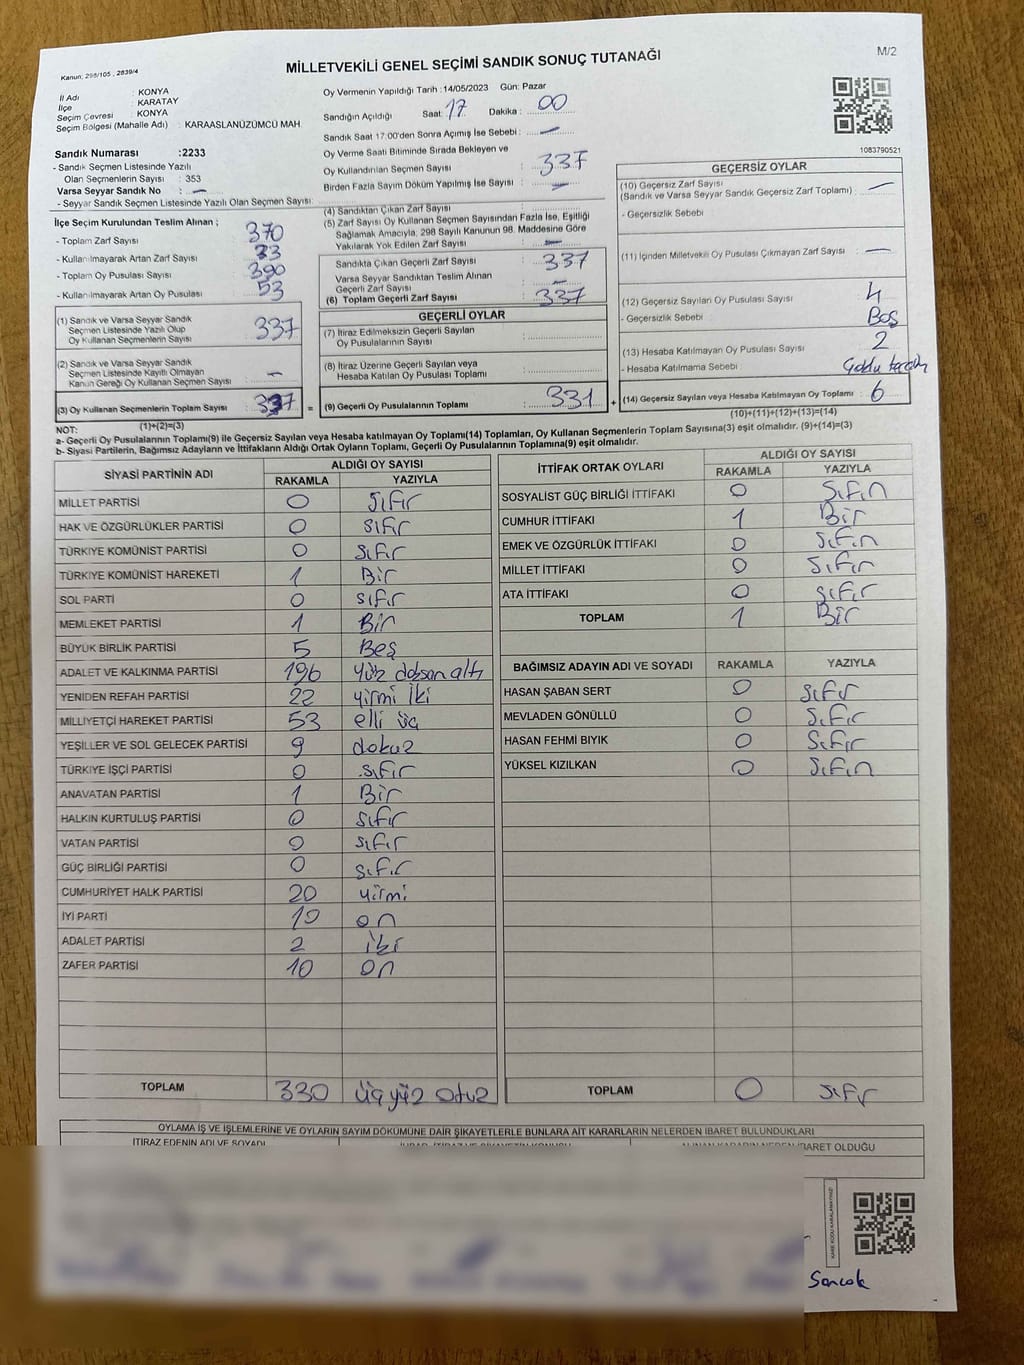 M/2
Kanun; 298/105 , 2839/4
MİLLETVEKİLİ GENEL SEÇİMİ SANDIK SONUÇ TUTANAĞI
İl Adı : KONYA
İlçe : KARATAY
Seçim Çevresi : KONYA
Seçim Bölgesi (Mahalle Adı) : KARAASLANÜZÜMCÜ MAH.
Sandık Numarası :2233
- Sandık Seçmen Listesinde Yazılı
Olan Seçmenlerin Sayısı : 353
Varsa Seyyar Sandık No : –
- Seyyar Sandık Seçmen Listesinde Yazılı Olan Seçmen Sayısı:
Oy Vermenin Yapıldığı Tarih :14/05/2023 Gün: Pazar
Sandığın Açıldığı Saat: 17 Dakika : 00
Sandık Saat 17:00'den Sonra Açımış İse Sebebi : –
Oy Verme Saati Bitiminde Sırada Bekleyen ve
Oy Kullandırılan Seçmen Sayısı : 337
Birden Fazla Sayım Döküm Yapılmış İse Sayısı : –
1083790521
İlçe Seçim Kurulundan Teslim Alınan ;
- Toplam Zarf Sayısı : 370
- Kullanılmayarak Artan Zarf Sayısı : 33
- Toplam Oy Pusulası Sayısı : 390
- Kullanılmayarak Artan Oy Pusulası : 53
(1) Sandık ve Varsa Seyyar Sandık
Seçmen Listesinde Yazılı Olup
Oy Kullanan Seçmenlerin Sayısı : 337
(2) Sandık ve Varsa Seyyar Sandık
Seçmen Listesinde Kayıtlı Olmayan
Kanun Gereği Oy Kullanan Seçmen Sayısı : –
(3) Oy Kullanan Seçmenlerin Toplam Sayısı : 337 =
(1)+(2)=(3)
(4) Sandıktan Çıkan Zarf Sayısı :
(5) Zarf Sayısı Oy Kullanan Seçmen Sayısından Fazla İse, Eşitliği
Sağlamak Amacıyla, 298 Sayılı Kanunun 98. Maddesine Göre
Yakılarak Yok Edilen Zarf Sayısı : –
Sandıkta Çıkan Geçerli Zarf Sayısı : 337
Varsa Seyyar Sandıktan Teslim Alınan
Geçerli Zarf Sayısı : –
(6) Toplam Geçerli Zarf Sayısı : 337
GEÇERLİ OYLAR
(7) İtiraz Edilmeksizin Geçerli Sayılan
Oy Pusulalarının Sayısı :
(8) İtiraz Üzerine Geçerli Sayılan veya
Hesaba Katılan Oy Pusulası Toplamı :
(9) Geçerli Oy Pusulalarının Toplamı : 331 +
GEÇERSİZ OYLAR
(10) Geçersiz Zarf Sayısı
(Sandık ve Varsa Seyyar Sandık Geçersiz Zarf Toplamı) : –
- Geçersizlik Sebebi
(11) İçinden Milletvekili Oy Pusulası Çıkmayan Zarf Sayısı : –
(12) Geçersiz Sayılan Oy Pusulası Sayısı : 4
- Geçersizlik Sebebi : Boş
(13) Hesaba Katılmayan Oy Pusulası Sayısı : 2
- Hesaba Katılmama Sebebi :
(14) Geçersiz Sayılan veya Hesaba Katılmayan Oy Toplamı : 6
(10)+(11)+(12)+(13)=(14)
NOT:
a- Geçerli Oy Pusulalarının Toplamı(9) ile Geçersiz Sayılan veya Hesaba katılmayan Oy Toplamı(14) Toplamları, Oy Kullanan Seçmenlerin Toplam Sayısına(3) eşit olmalıdır. (9)+(14)=(3)
b- Siyasi Partilerin, Bağımsız Adayların ve İttifakların Aldığı Ortak Oyların Toplamı, Geçerli Oy Pusulalarının Toplamına(9) eşit olmalıdır.
SİYASİ PARTİNİN ADI ALDIĞI OY SAYISI
RAKAMLA YAZIYLA
MİLLET PARTİSİ 0 sıfır
HAK VE ÖZGÜRLÜKLER PARTİSİ 0 sıfır
TÜRKİYE KOMÜNİST PARTİSİ 0 sıfır
TÜRKİYE KOMÜNİST HAREKETİ 1 Bir
SOL PARTİ 0 sıfır
MEMLEKET PARTİSİ 1 Bir
BÜYÜK BİRLİK PARTİSİ 5 Beş
ADALET VE KALKINMA PARTİSİ 196 yüz doksan altı
YENİDEN REFAH PARTİSİ 22 yirmi iki
MİLLİYETÇİ HAREKET PARTİSİ 53 elli üç
YEŞİLLER VE SOL GELECEK PARTİSİ 9 dokuz
TÜRKİYE İŞÇİ PARTİSİ 0 sıfır
ANAVATAN PARTİSİ 1 Bir
HALKIN KURTULUŞ PARTİSİ 0 sıfır
VATAN PARTİSİ 0 sıfır
GÜÇ BİRLİĞİ PARTİSİ 0 sıfır
CUMHURİYET HALK PARTİSİ 20 yirmi
İYİ PARTİ 10 on
ADALET PARTİSİ 2 iki
ZAFER PARTİSİ 10 on
TOPLAM 330 üçyüz otuz
İTTİFAK ORTAK OYLARI ALDIĞI OY SAYISI
RAKAMLA YAZIYLA
SOSYALİST GÜÇ BİRLİĞİ İTTİFAKI 0 sıfır
CUMHUR İTTİFAKI 1 Bir
EMEK VE ÖZGÜRLÜK İTTİFAKI 0 sıfır
MİLLET İTTİFAKI 0 sıfır
ATA İTTİFAKI 0 sıfır
TOPLAM 1 Bir
BAĞIMSIZ ADAYIN ADI VE SOYADI RAKAMLA YAZIYLA
HASAN ŞABAN SERT 0 sıfır
MEVLADEN GÖNÜLLÜ 0 sıfır
HASAN FEHMİ BIYIK 0 sıfır
YÜKSEL KIZILKAN 0 sıfır
TOPLAM 0 sıfır
OYLAMA İŞ VE İŞLEMLERİNE VE OYLARIN SAYIM DÖKÜMÜNE DAİR ŞİKAYETLERLE BUNLARA AİT KARARLARIN NELERDEN İBARET BULUNDUKLARI
İTİRAZ EDENİN ADI VE SOYADI
ALINAN KARARIN NEDEN İBARET OLDUĞU
KARE KODU KARALAMAYINIZ!